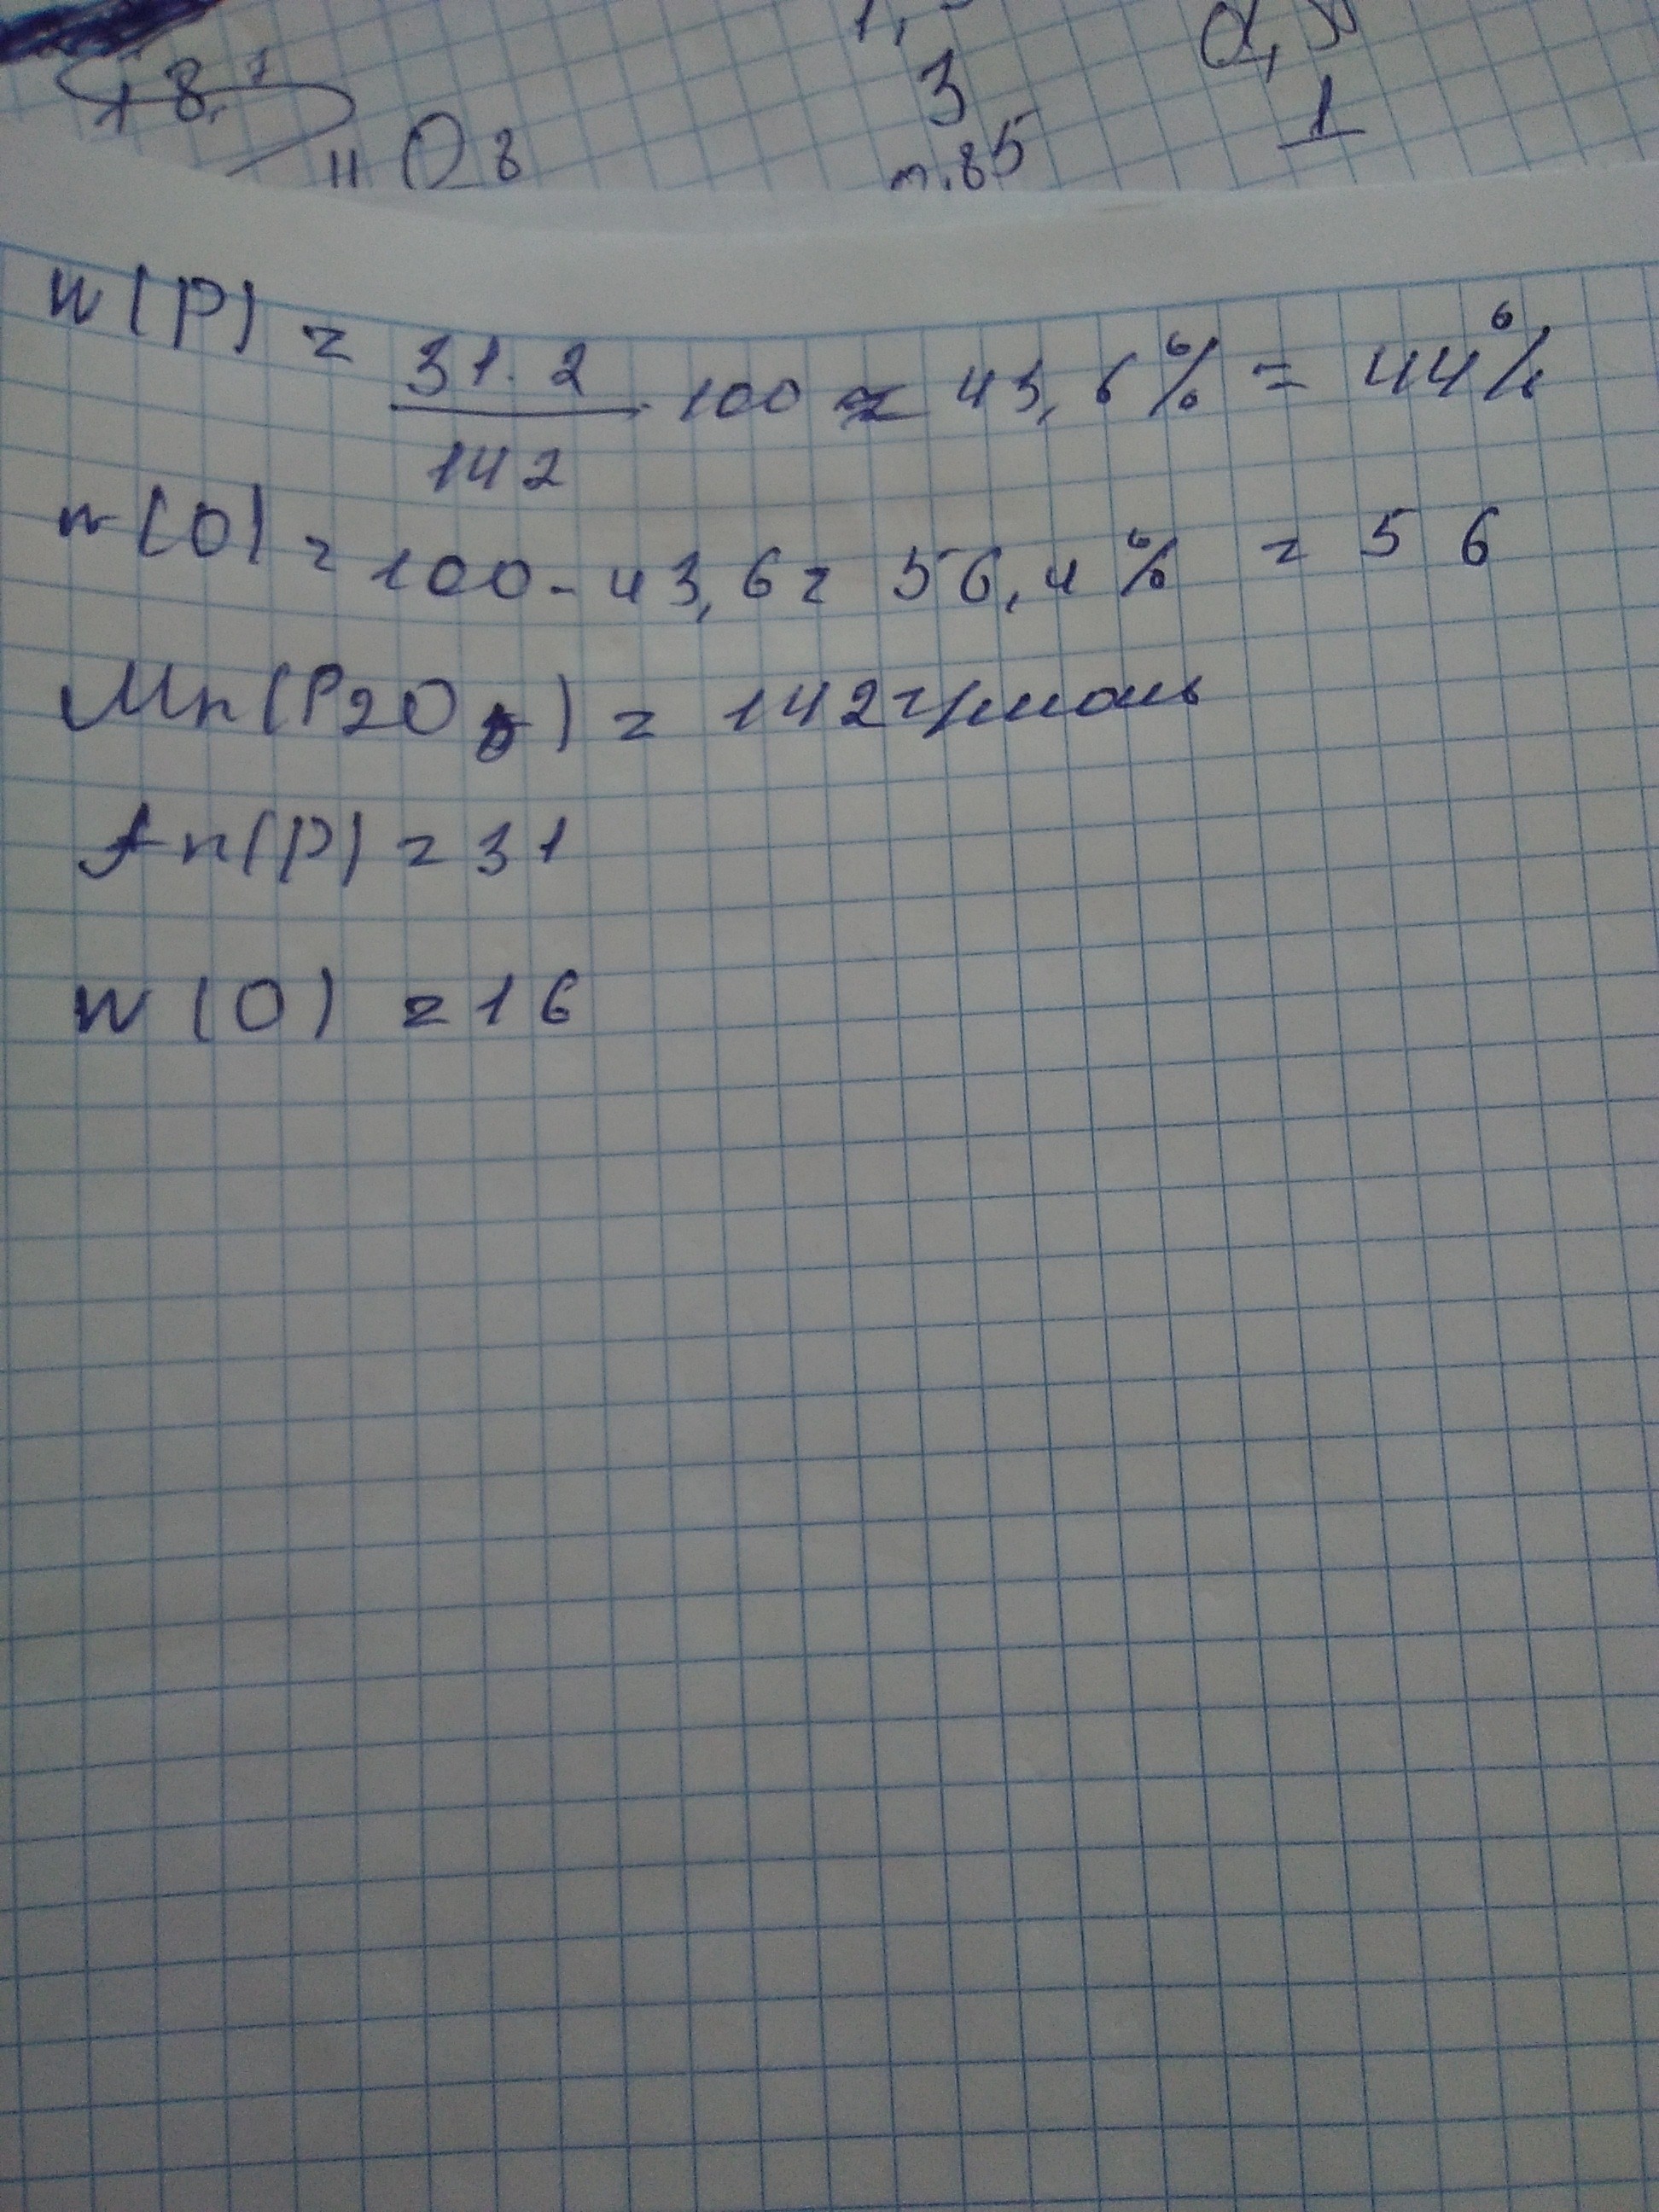 +8,
3
1
11 O 8
п.85
w(P) = 31·2/142 · 100 ≈ 43,6% = 44%
w(O) = 100 - 43,6 = 56,4% = 56
Mr(P2O5) = 142 г/моль
Ar(P) = 31
w(O) = 16